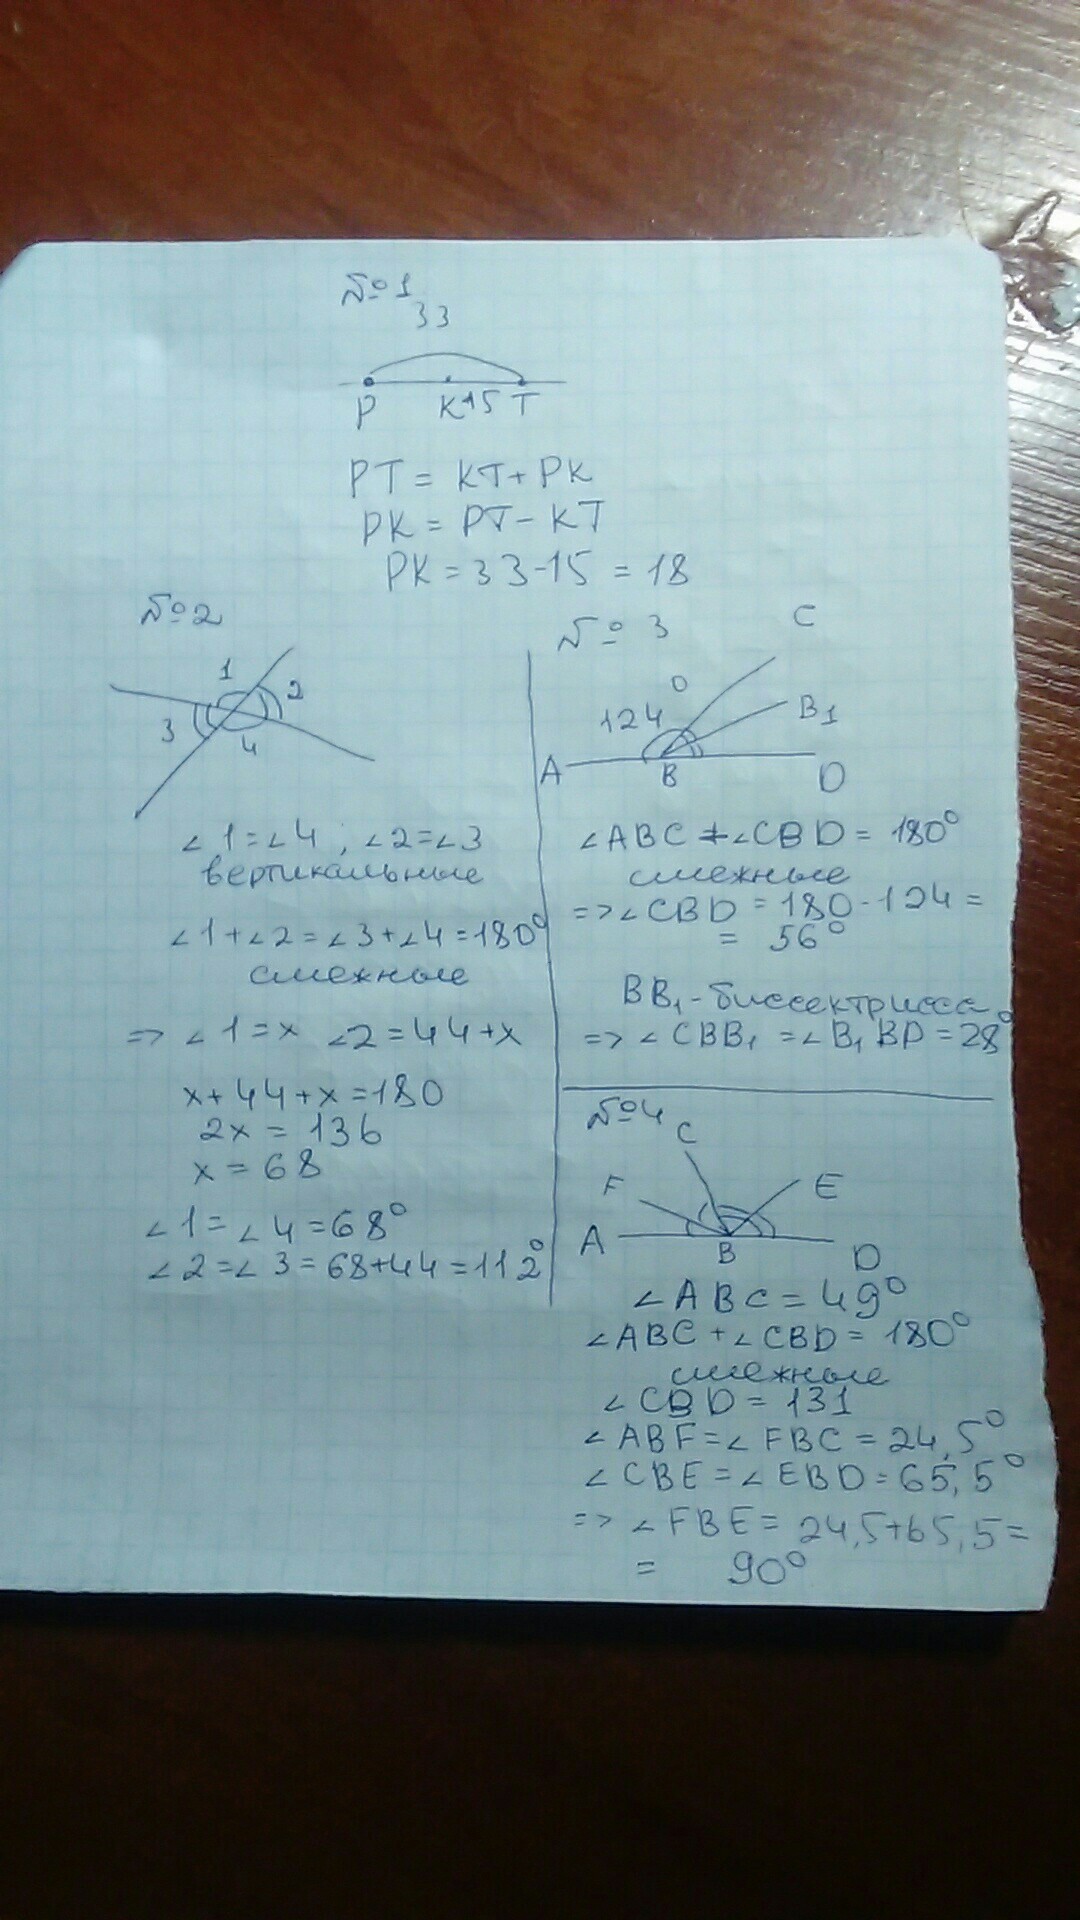 №1
33
P K 15 T
PT = KT + PK
PK = PT - KT
PK = 33 - 15 = 18
№2
1
2
3
4
∠1 = ∠4 ; ∠2 = ∠3
вертикальные
∠1 + ∠2 = ∠3 + ∠4 = 180°
смежные
=> ∠1 = x ∠2 = 44 + x
x + 44 + x = 180
2x = 136
x = 68
∠1 = ∠4 = 68°
∠2 = ∠3 = 68 + 44 = 112°
№ 3
C
124°
B1
A B D
∠ABC + ∠CBD = 180°
смежные
=> ∠CBD = 180 - 124 =
= 56°
BB₁ - биссектрисса
=> ∠CBB₁ = ∠B₁BD = 28°
№4
C
F E
A B D
∠ABC = 49°
∠ABC + ∠CBD = 180°
смежные
∠CBD = 131
∠ABF = ∠FBC = 24,5°
∠CBE = ∠EBD = 65,5°
=> ∠FBE = 24,5 + 65,5 =
= 90°